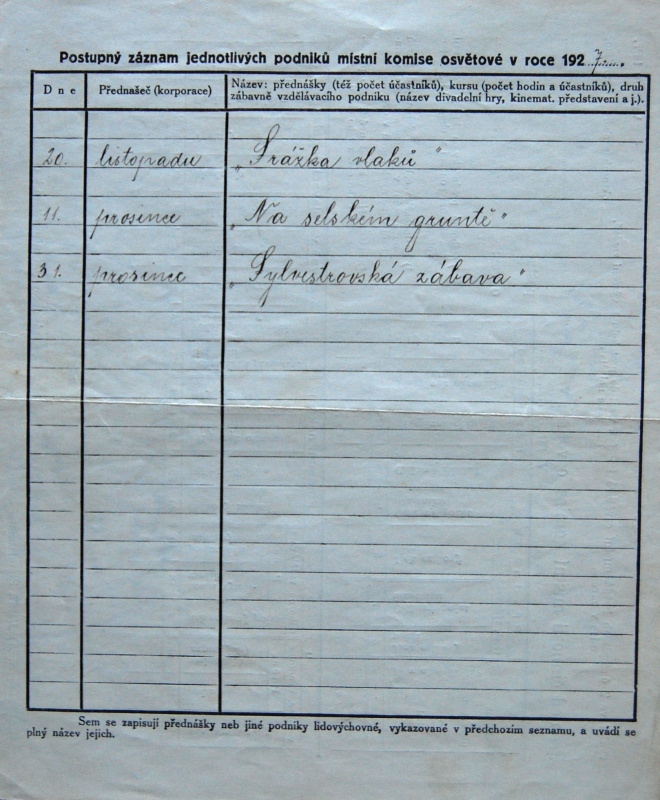 Postupný záznam jednotlivých podniků místní komise osvětové v roce 1927.
Dne
Přednašeč (korporace)
Název: přednášky (též počet účastníků), kursu (počet hodin a účastníků), druh
zábavně vzdělávacího podniku (název divadelní hry, kinemat. představení a j.).
20. listopadu „Srážka vlaků"
11. prosince „Na selském gruntě"
31. prosince „Sylvestrovská zábava"
Sem se zapisují přednášky neb jiné podniky lidovýchovné, vykazované v předchozím seznamu, a uvádí se
plný název jejich.